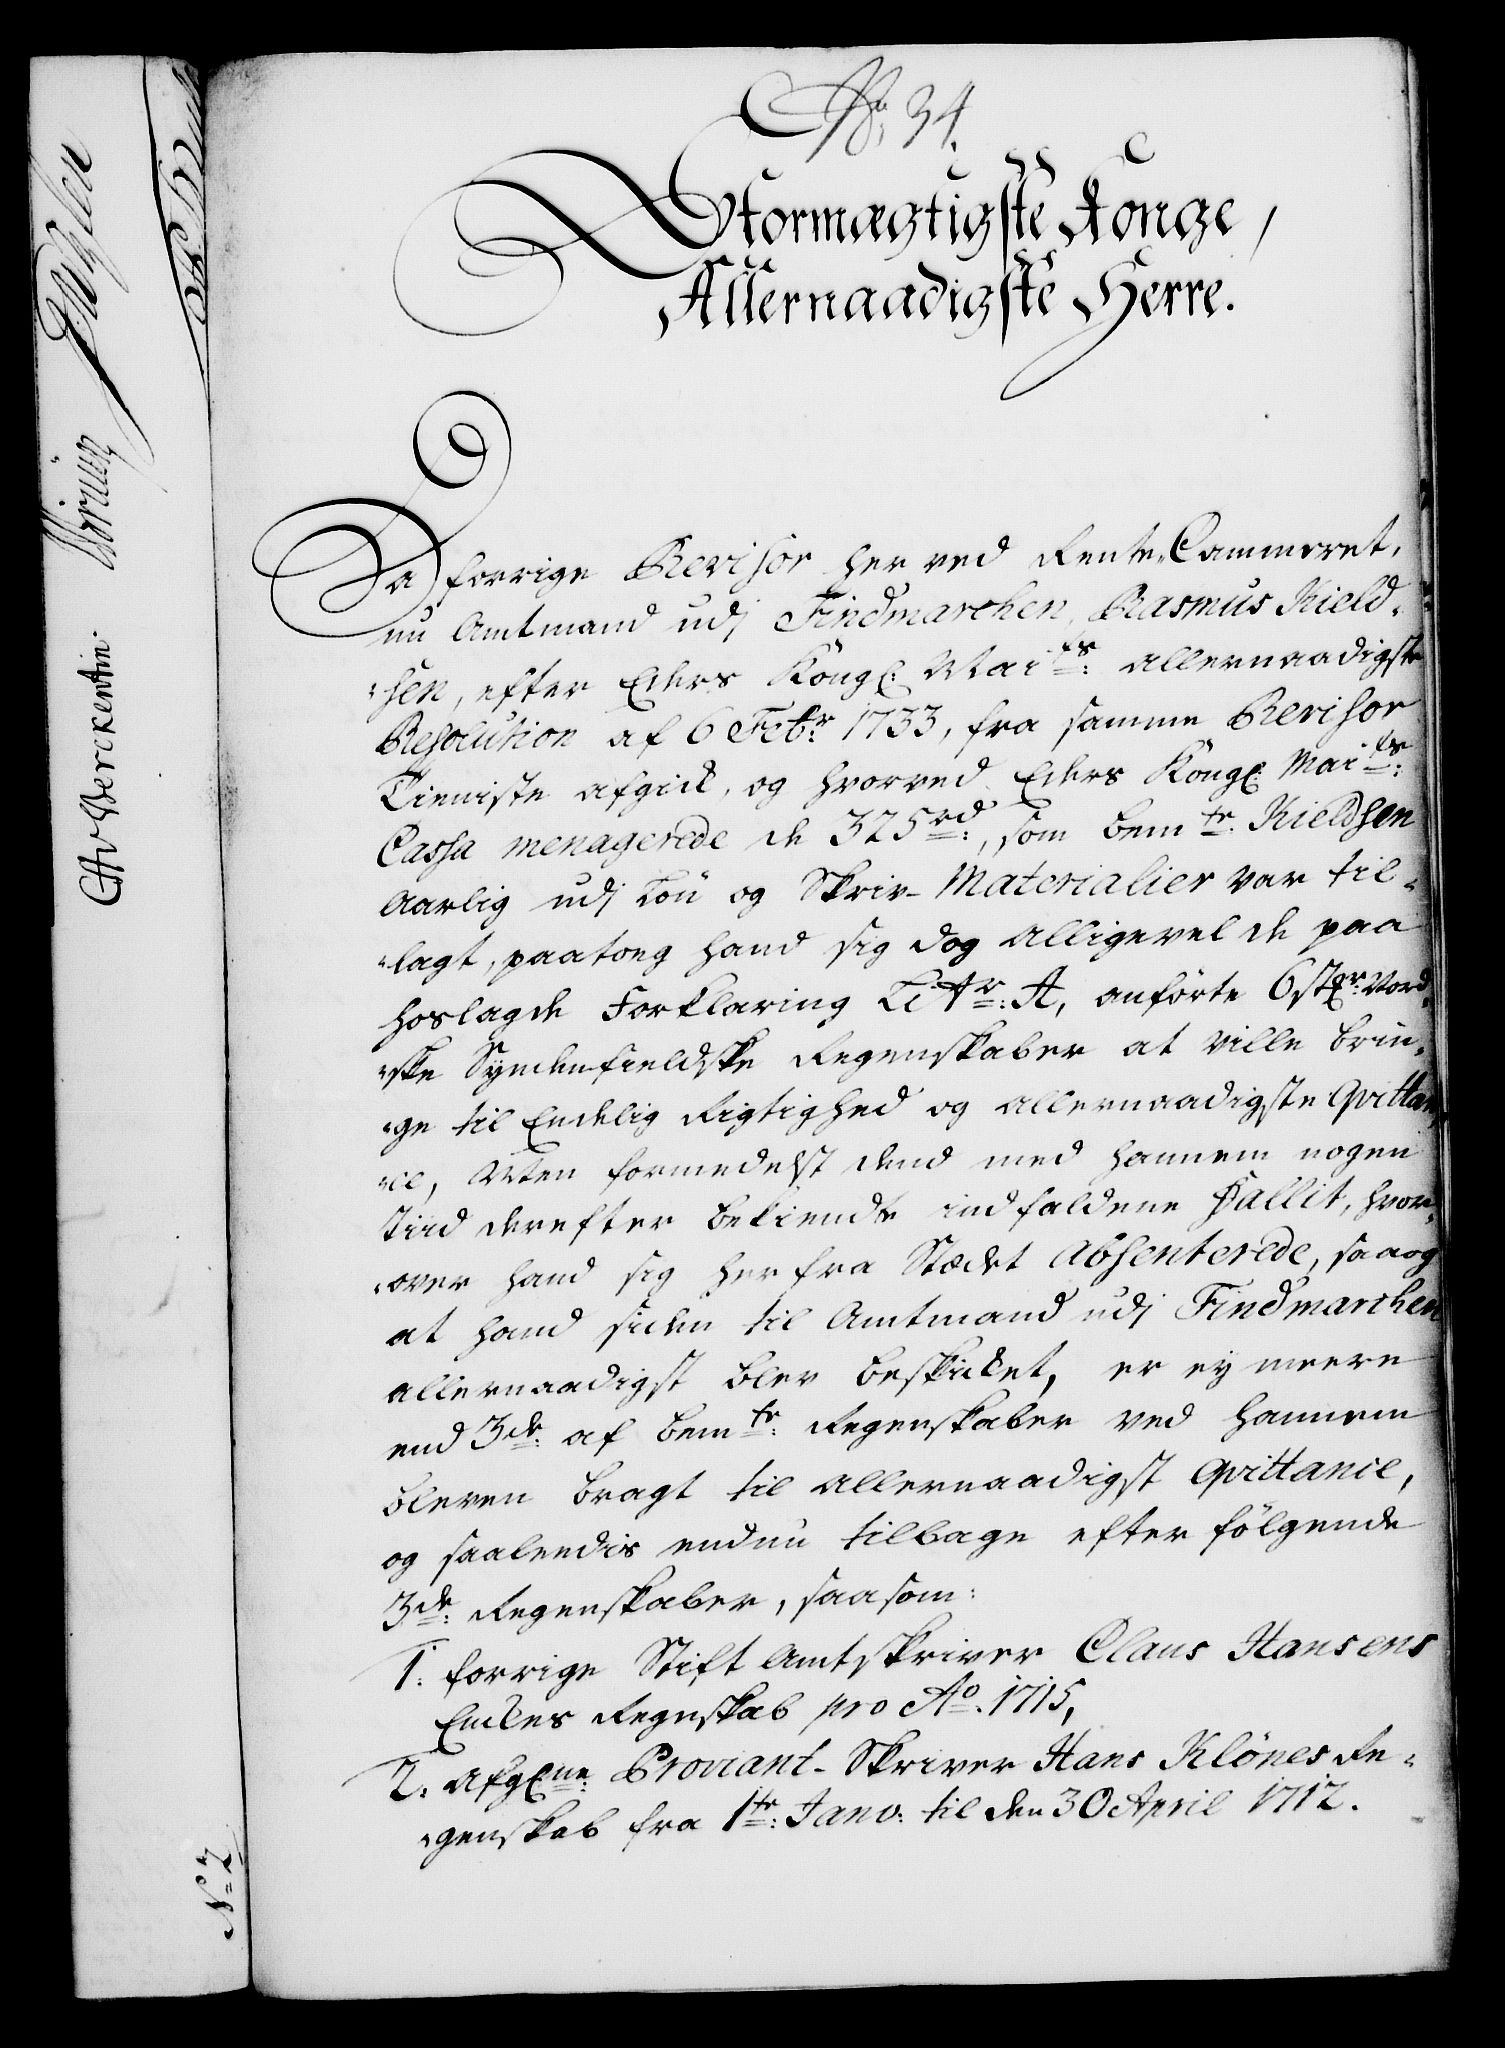 No. 34.
Stormægtigste Konge,
Allernaadigste Herre.
Da forrige Revisor her ved Rente-Cammeret,
nu Amtmand udj Findmarchen, Rasmus Kield-
sen, efter Eders Kongl: Maits: allernaadigste
Resolution af 6 Febr: 1733, fra samme Revisor
Tieniste afgick, og hvorved Eders Kongl: Maits:
Cassa menagerede de 325 rd:, som bemte: Kieldsen
Aarlig udj Løn og Skriv-Materialier var til-
lagt, paatog hand sig dog alligevel de paa
hoslagde Forklaring Litr: A, anførte 6 stkr: Nord-
ske Syndenfieldske Regenskaber at ville brin-
ge til Endelig Rigtighed og allernaadigste Qvittan-
ce, Men formedelst dend med hannem nogen
Tiid derefter bekiendte indfaldene Fallit, hvor-
over hand sig her fra Stædet Absenterede, saa og
at hand siden til Amtmand udj Findmarchen
allernaadigst blev beskicket, er ey meere
end 3de: af bemte: Regenskaber ved hannem
bleven bragt til allernaadigst Qvittance,
og saaledis endnu tilbage efter følgende
3de: Regenskaber, saasom:
1: forrige Stift Amtskriver Claus Hansens
Enckes Regnskab pro Ao. 1715,
2: Afgl:ne: Proviant-Skriver Hans Klønes Re-
genskab fra 1te: Janv: til den 30 April 1712.
CAvBerckentin.
No 2